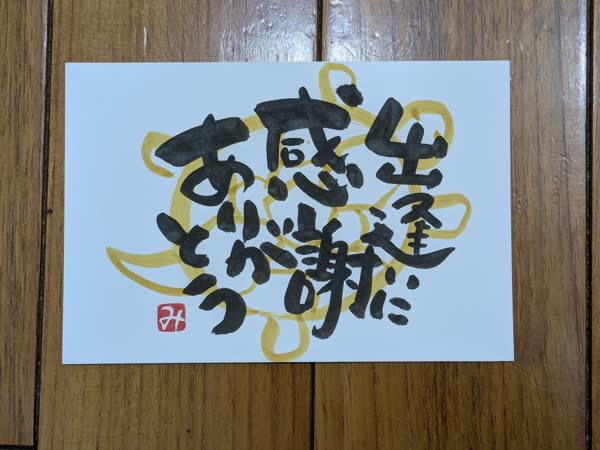 出逢に
感謝
ありがとう
み